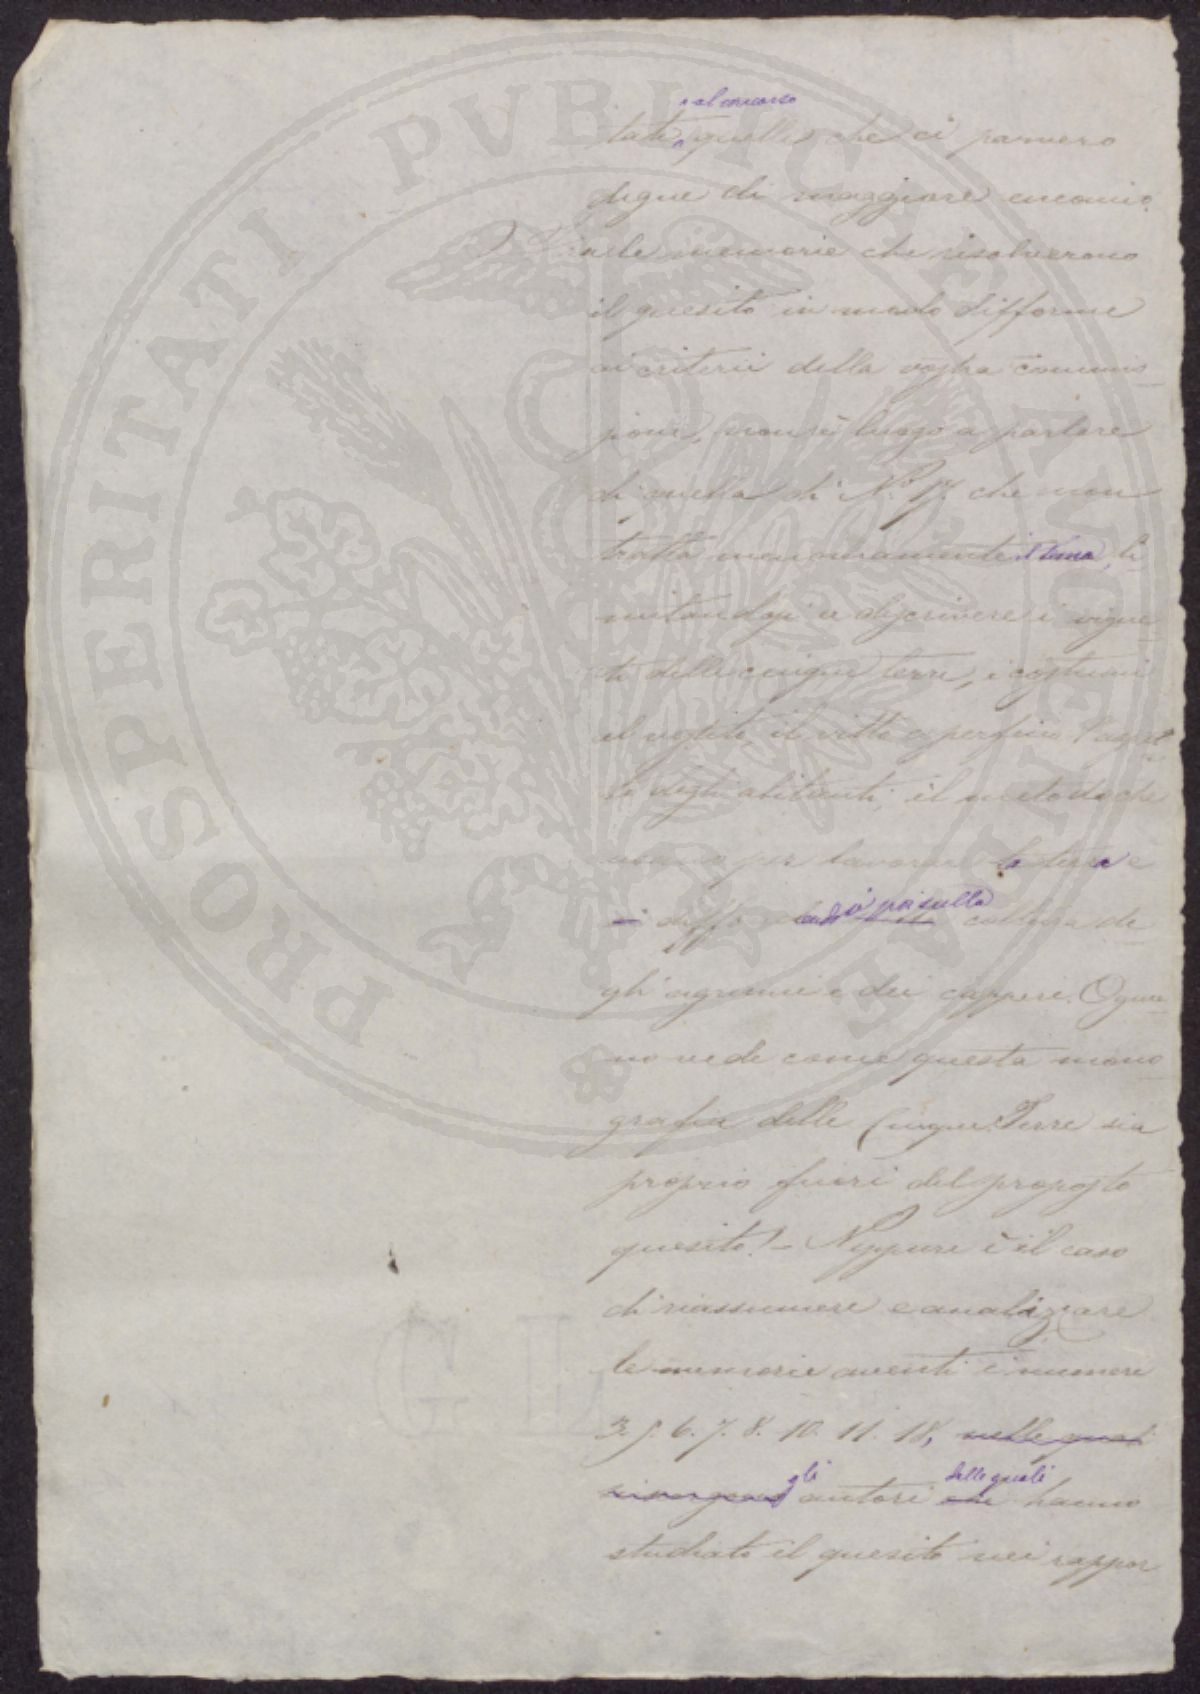 al concorso
tate quelle che ci parvero
degne di maggiore encomio.
Fra le memorie che risolverono
il quesito in modo difforme
ai criterii della vostra commis
sione, non è luogo a parlare
di quella di N.º 17. che non
tratta menomamente il tema, li
mitandosi a descrivere i vigne
ti delle cinque terre, i costumi
il vestito, il vitto e perfino l'aspet
to degli abitanti, il metodo che
usano per lavorare la terra e
poi sulla
coltura de
gli agrumi e dei capperi. Ognu
no vede come questa mono
grafia delle Cinque Terre sia
proprio fuori del proposto
quesito! – Neppure è il caso
di riassumere e analizzare
le memorie aventi i numeri
3. 5. 6. 7. 8. 10. 11. 18, nelle quali
gli delle quali
autori che hanno
studiato il quesito nei rappor
PROSPERITATI PVBLICAE AVGENDAE